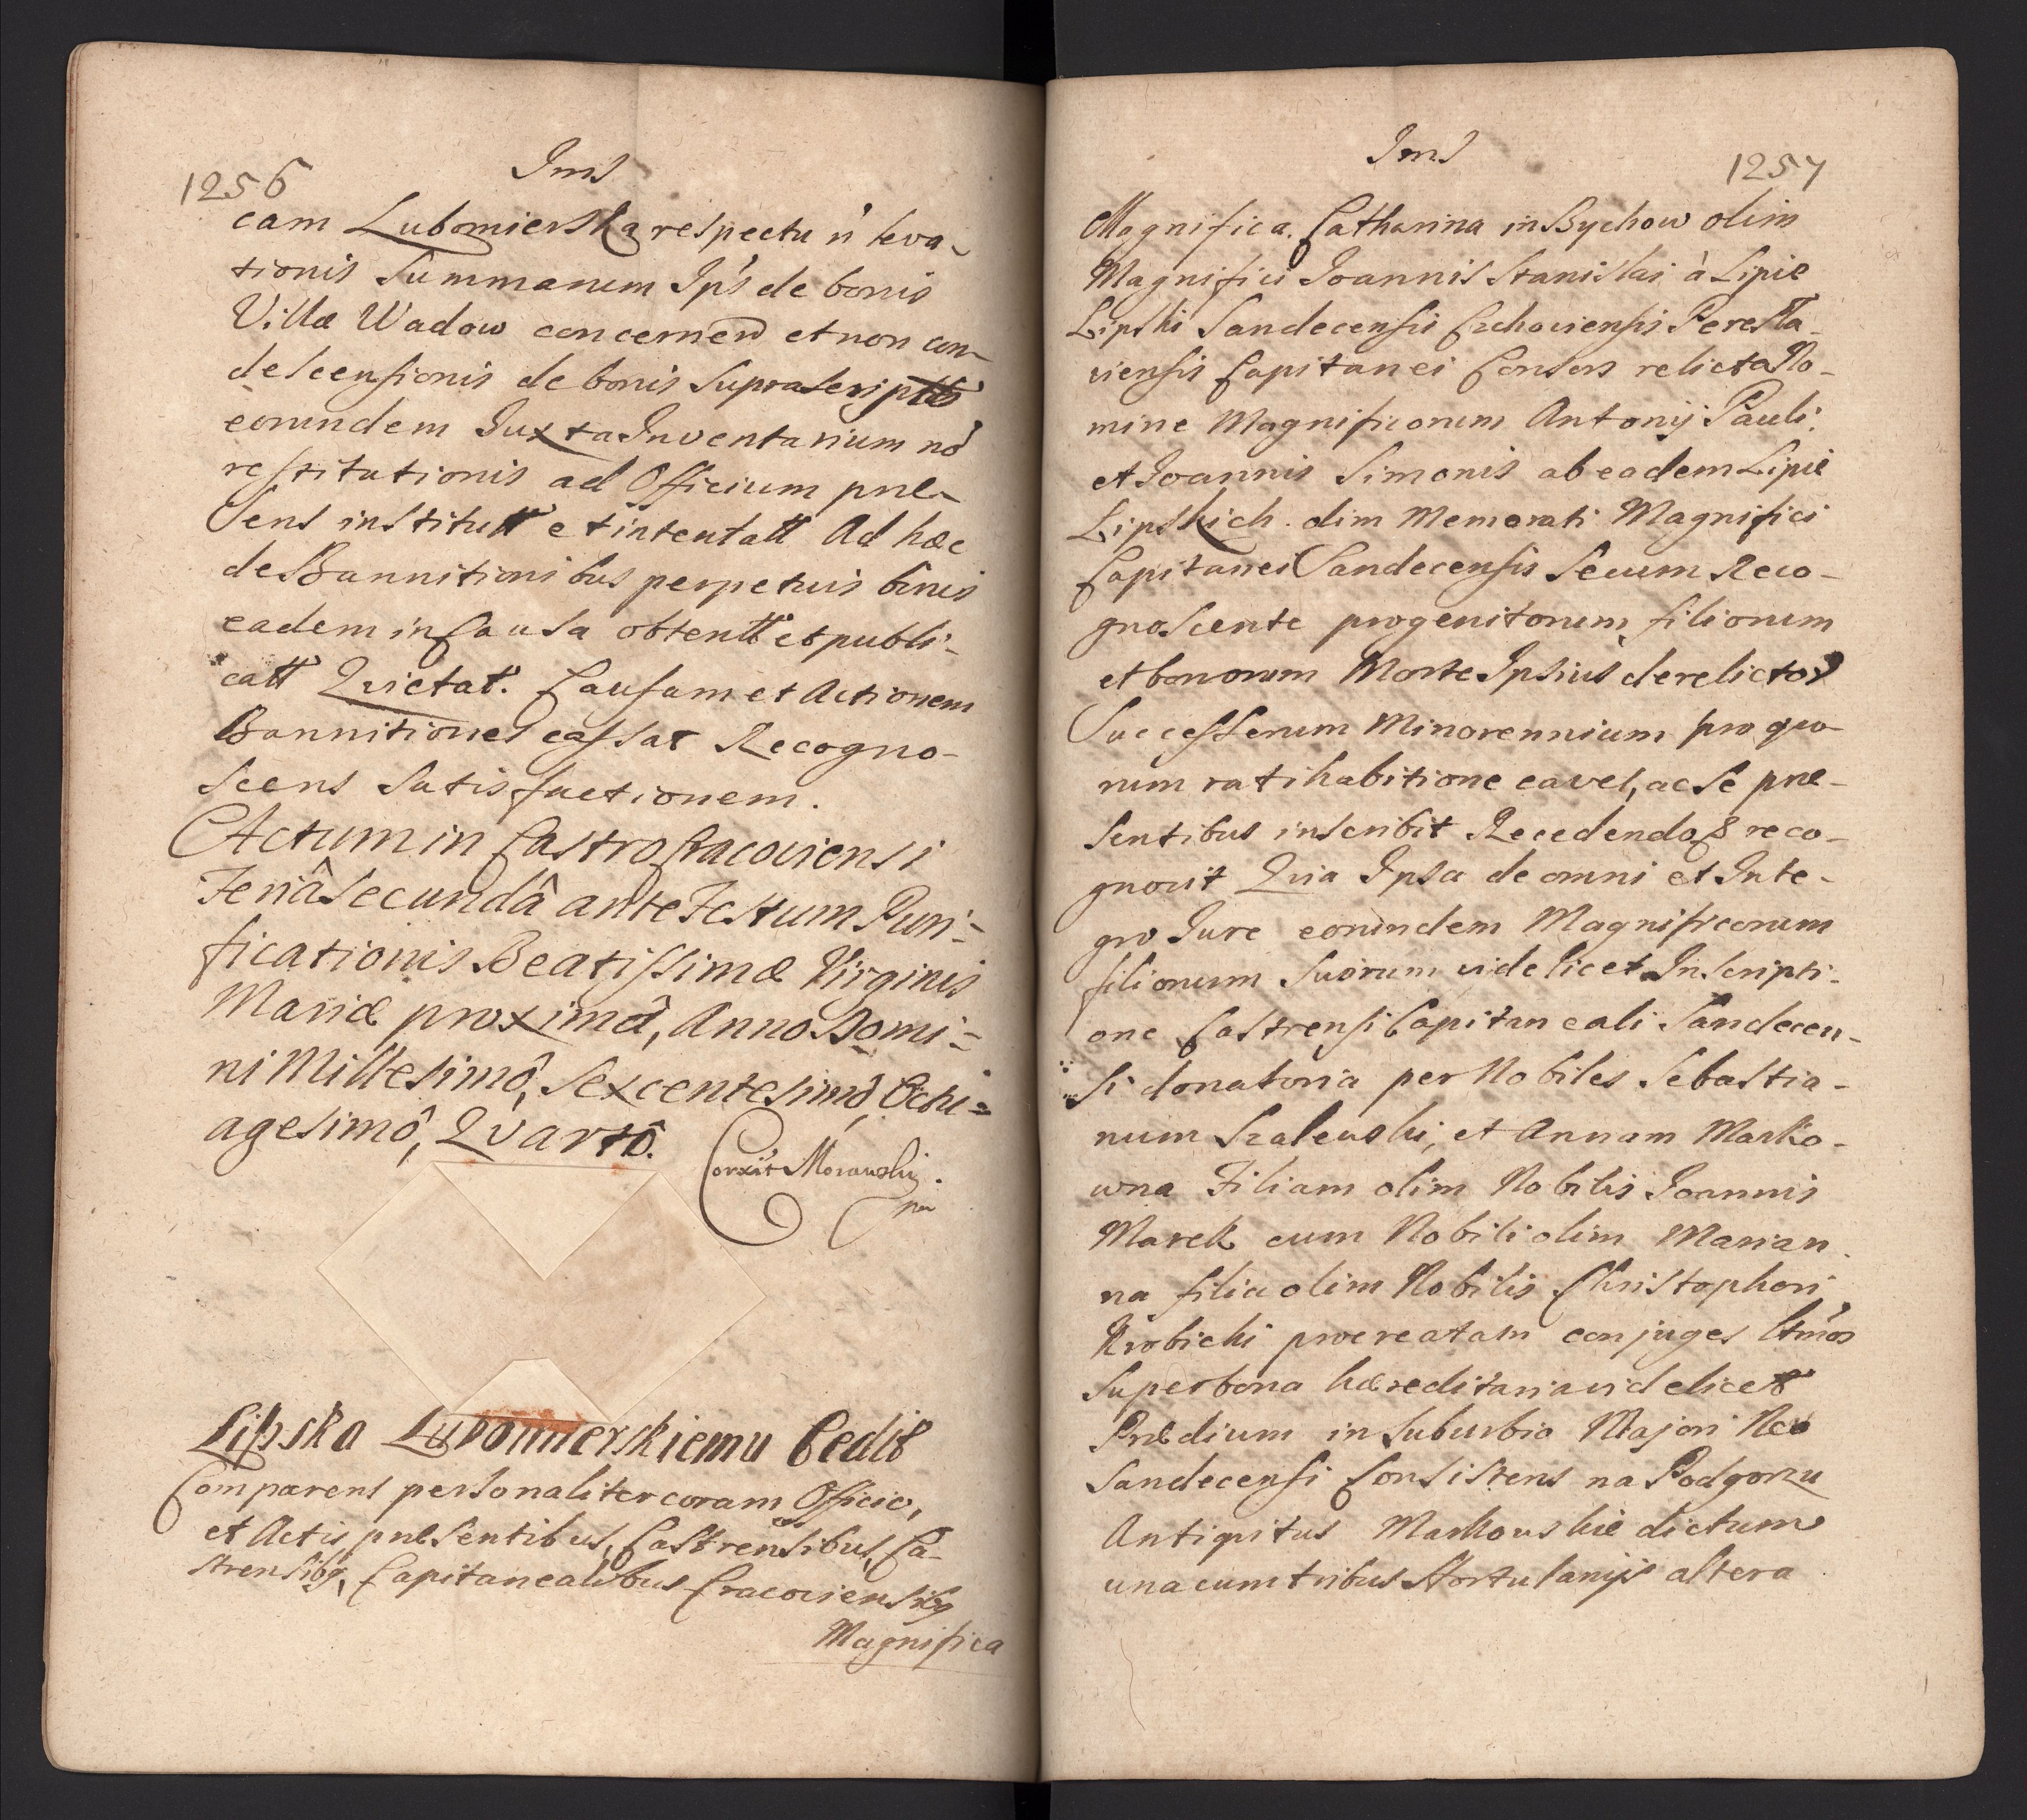 1256
Ims
cam Lubomierska respectu ń leva-
tionis Summarum Ip's de bonis
Villæ Wadow concernen et non con-
descensionis de bonis Suprascriptt
eorundem Juxta Inventarium nō
restitutionis ad Officium præ-
sens institutt et intentatt Ad hæc
de Bannitionibus perpetuis binis
eadem in Causa obtentt et publi-
catt Quietat. Causam et Actionem
Bannitiones cassat Recogno-
scens Satisfactionem.
Actum in Castro Cracoviensi
Feriâ Secundâ ante Festum Puri=
ficationis Beatissimæ Virginis
Mariæ proximâ, Anno Domi=
ni Millesimô, Sexcentesimô Octu=
agesimô, Quartô.
Corxit Morawski.
Lipska Lubomierskiemu Cedit
Comparens personaliter coram Officio,
et Actis præsentibus, Castrensibus, Ca-
strensibq, Capitanealibus Cracoviensibq
Magnifica
Ims
1257
Magnifica. Catharina in Bychow olim
Magnifici Joannis Stanislai à Lipie
Lipski Sandecensis Czchoviensis Peresla-
viensis Capitanei Consors relicta No-
mine Magnificorum Antonij Pauli
et Joannis Simonis ab eadem Lipie
Lipskich. olim Memorati Magnifici
Capitanei Sandecensis Secum Reco-
gnoscente progenitorum, filiorum
et bonorum Morte Ipsius derelictor
Successorum Minorennium pro quo-
rum ratihabitione cavet, ac Se præ-
sentibus inscribit Recedendo & reco-
gnovit Quia Ipsa de omni et Inte-
gro Jure eorundem Magnificorum
filiorum Suorum videlicet Inscripti-
one Castrensi Capitaneali Sandecen-
si donatoria per Nobiles Sebastia-
num Szalewski, et Annam Marko-
wna Filiam olim Nobilis Joannis
Marek cum Nobili olim Marian-
na filia olim Nobilis Christophori
procreatam conjuges
Super bona hæreditaria videlicet
Prædium in Suburbio Majori Neo
Sandecensi Consistens na Podgorzu
Antiquitus Markowskie dictum
una cum tribus Hortulanijs altera